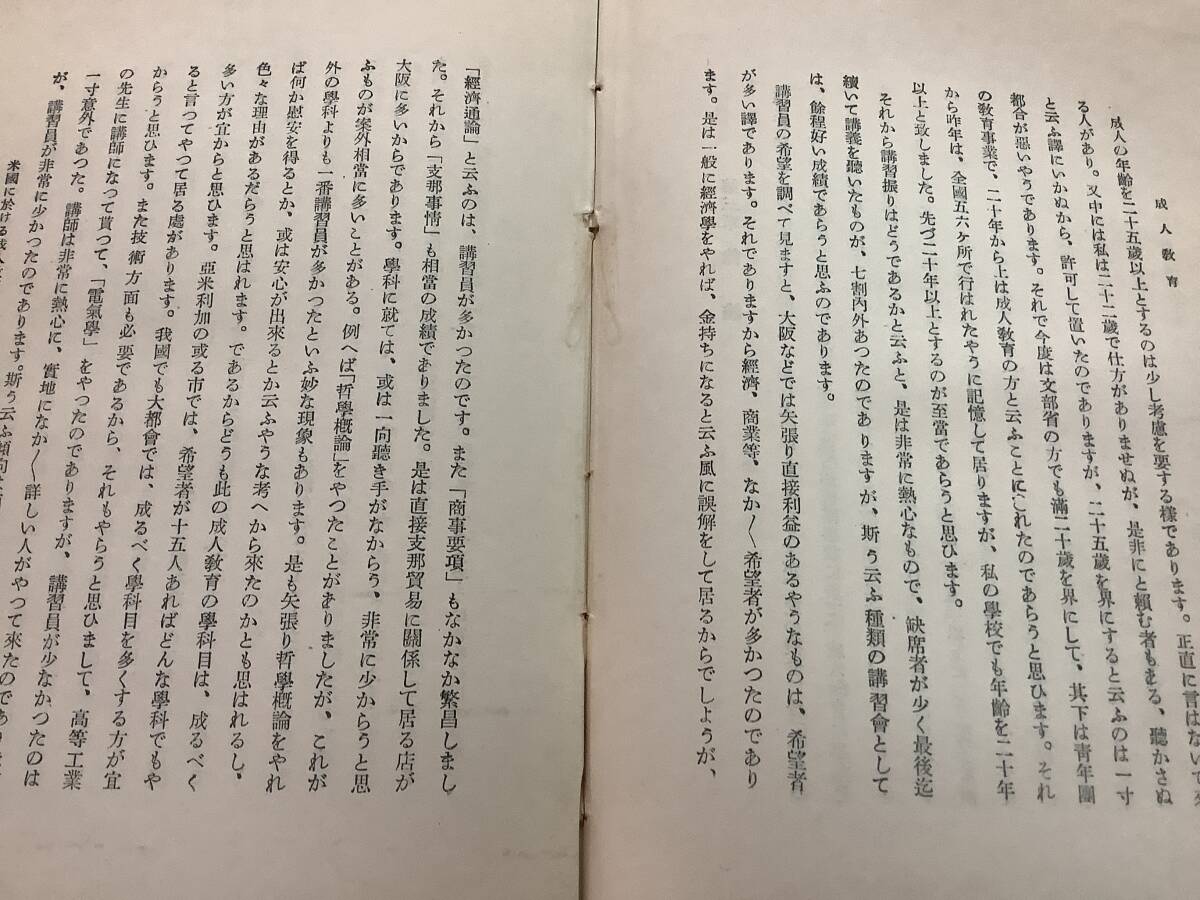 成人教育
成人の年齡を二十五歲以上とするのは少し考慮を要する樣であります。正直に言はないで來
る人があり。又中には私は二十二歲で仕方がありませぬが、是非にと賴む者もある、聽かさぬ
と云ふ譯にいかぬから、許可して置いたのでありますが、二十五歲を界にすると云ふのは一寸
都合が惡いやうであります。それで今度は文部省の方でも滿二十歲を界にして、其下は靑年團
の敎育事業で、二十年から上は成人敎育の方と云ふことにこれたのであらうと思ひます。それ
から昨年は、全國五六ヶ所で行はれたやうに記憶して居りますが、私の學校でも年齡を二十年
以上と致しました。先づ二十年以上とするのが至當であらうと思ひます。
それから講習振りはどうであるかと云ふと、是は非常に熱心なもので、缺席者が少く最後迄
續いて講義を聽いたものが、七割內外あつたのでありますが、斯う云ふ種類の講習會として
は、餘程好い成績であらうと思ふのであります。
講習員の希望を調べて見ますと、大阪などでは矢張り直接利益のあるやうなものは、希望者
が多い譯であります。それでありますから經濟、商業等、なか〱希望者が多かつたのであり
ます。是は一般に經濟學をやれば、金持ちになると云ふ風に誤解をして居るからでしようが、
「經濟通論」と云ふのは、講習員が多かつたのです。また「商事要項」もなかなか繁昌しまし
た。それから「支那事情」も相當の成績でありました。是は直接支那貿易に關係して居る店が
大阪に多いからであります。學科に就ては、或は一向聽き手がなからう、非常に少からうと思
ふものが案外相當に多いことがある。例へば「哲學槪論」をやつたことがありましたが、これが
外の學科よりも一番講習員が多かつたといふ妙な現象もあります。是も矢張り哲學槪論をやれ
ば何か慰安を得るとか、或は安心が出來るとか云ふやうな考へから來たのかとも思はれるし、
色々な理由があるだらうと思はれます。であるからどうも此の成人敎育の學科目は、成るべく
多い方が宜からと思ひます。亞米利加の或る市では、希望者が十五人あればどんな學科でもや
ると言つてやつて居る處があります。我國でも大都會では、成るべく學科目を多くする方が宜
からうと思ひます。また技術方面も必要であるから、それもやらうと思ひまして、高等工業
の先生に講師になつて貰つて、「電氣學」をやつたのでありますが、講習員が少なかつたのは
一寸意外であつた。講師は非常に熱心に、實地になか〱詳しい人がやつて來たのであ
が、講習員が非常に少かつたのであります。斯う云ふ傾向は
米國に於ける成人